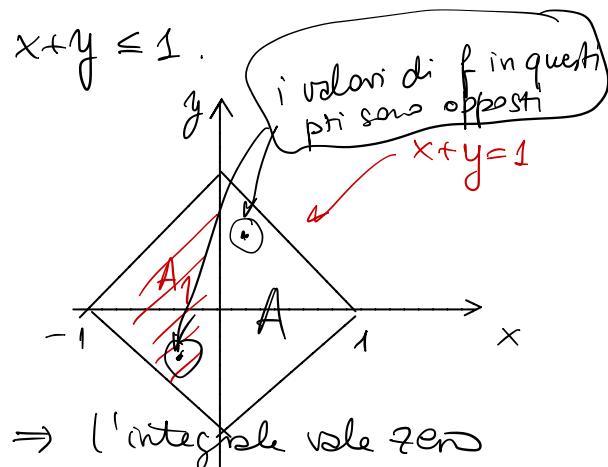 x+y ≤ 1.
i valori di f in questi
pti sono opposti
y
x+y=1
A₁
A
-1
1
x
⇒ l'integrale vale zero